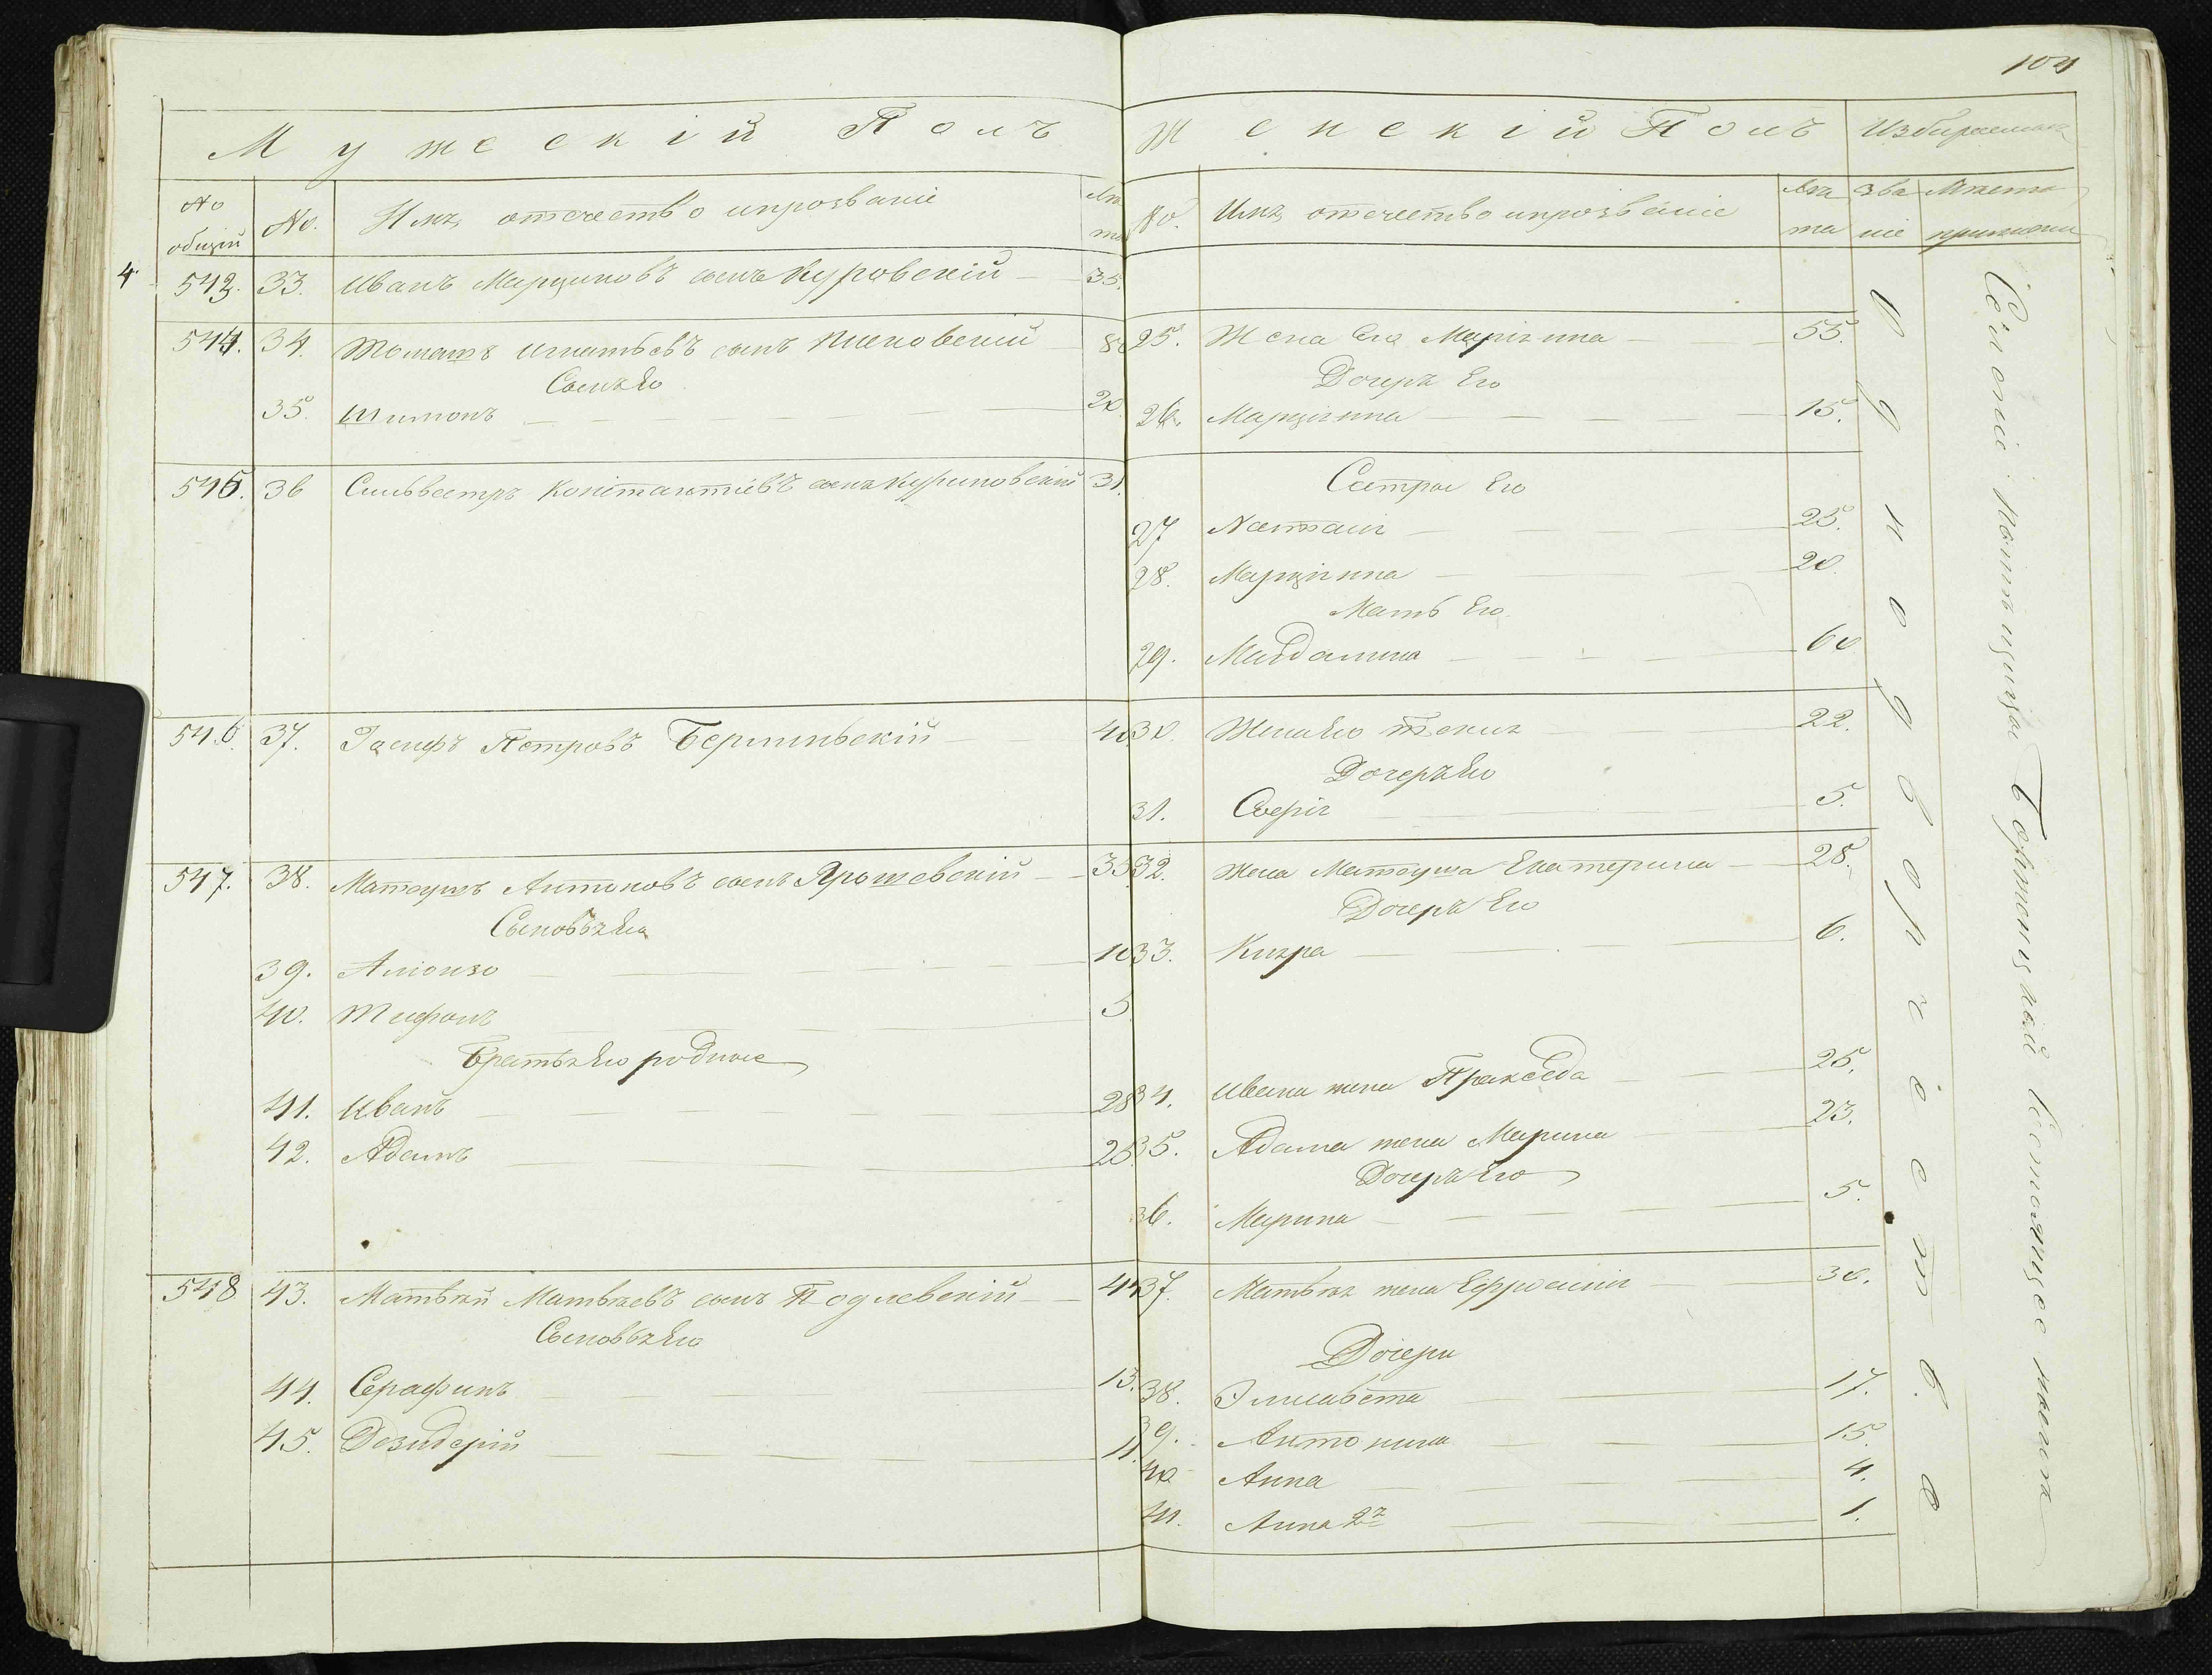 104
Мужескій Полъ
No общій
No.
Имя, отечество и прозваніе
Лѣта
4
543. 33. Иванъ Марциновъ сынъ Куровскій 35.
544. 34. Томашъ Игнатьевъ сынъ 80
Сынъ Его
35. Шимонъ 20.
545. 36 Сильвестръ Константіевъ сынъ Куриловскій 31.
546. 37. Іосифъ Петровъ 40
547. 38. Матоушъ Антоновъ сынъ Ярошевскій 35
Сыновья Его
39. Алюизо 10
40. Тифонъ 5
Братья Его родные
41. Иванъ 28
42. Адамъ 25.
548 43. Матвѣй Матвѣевъ сынъ Подлевскій 44
Сыновья Его
44. Серафинъ 13.
45. Дезидерій 11.
Женскій Полъ
Избираемыя
No.
Имя, отечество и прозваніе
Лѣта
Званіе
Мѣста приписки
25. Жена Его Маріянна 55.
Дочеръ Его
26. Марціянна 15.
Сестры Его
27 Наталія 25.
28. Марціянна 20.
Мать Его
29. Магдалина 60
30. Жена Его Текля 22.
Дочеръ Его
31. Софія 5.
32. Жена Матоуша Екатерина 28.
Дочеръ Его
33. Кляра 6.
34. Ивана жена Пракседа 25.
35. Адама жена Марина 23.
Дочеръ Его
36. Марина 5.
37. Матвѣя жена Ефросинія 30.
Дочери
38. Элисавета 17.
39. Антонина 15.
40 Анна 4.
41. Анна 2я 1.
Однодворчіство
Селеніе